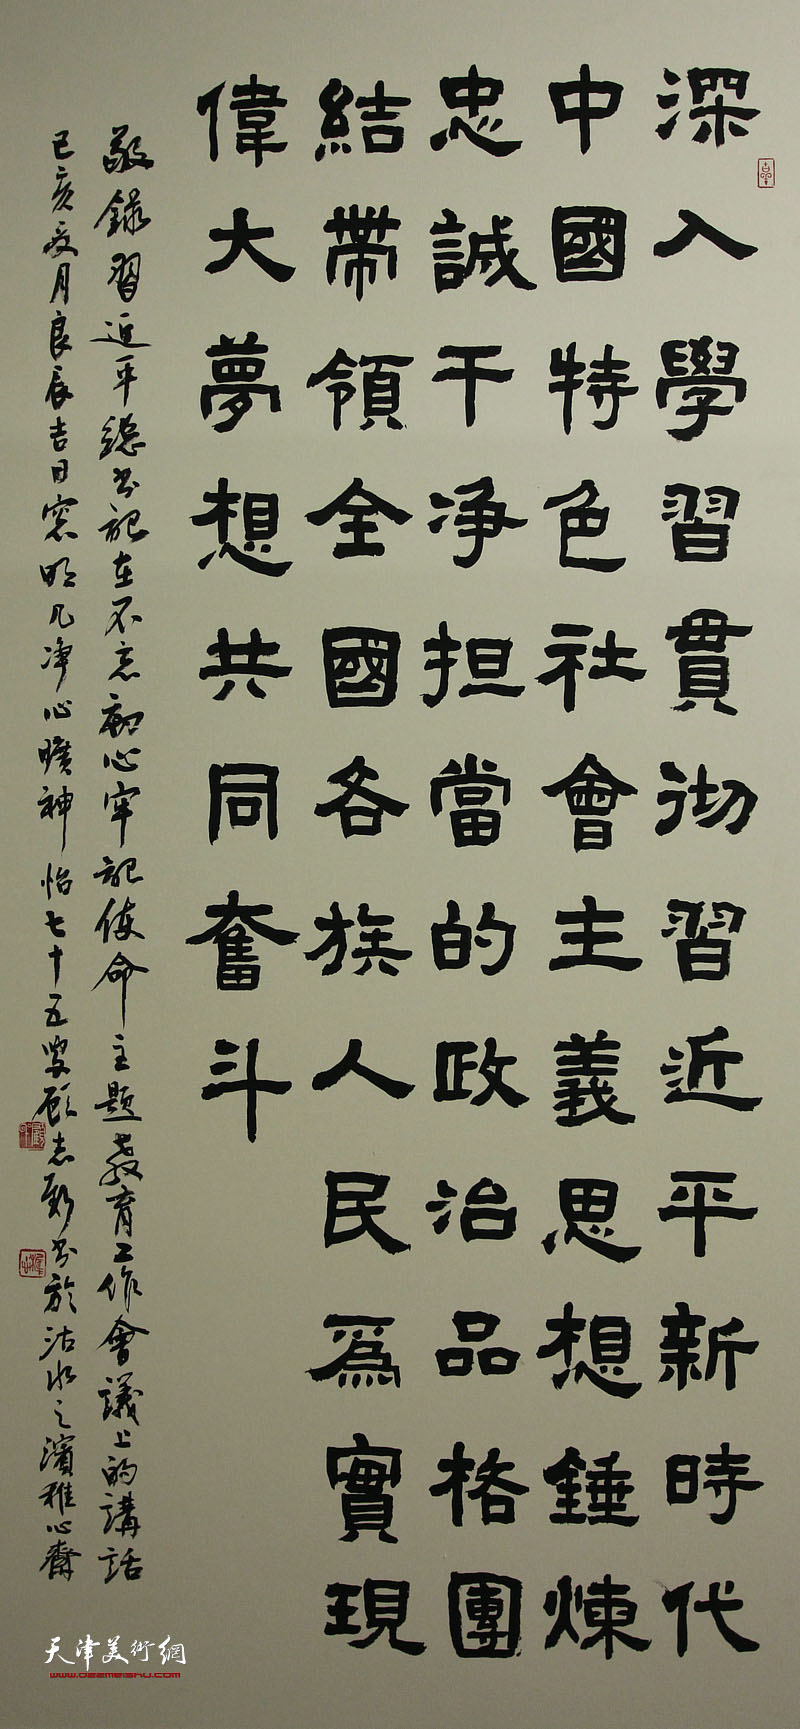 深入學習貫彻習近平新時代
中國特色社會主義思想錘煉
忠誠干净担當的政治品格團
結帶領全國各族人民爲實現
偉大夢想共同奮斗
敬錄習近平總书記在不忘初心牢記使命主題教育工作會議上的講話
己亥夏月良辰吉日窓明几净心曠神怡七十五叟顧志新书於沽水之濱雅心齋
天津美術網
www.022meishu.com